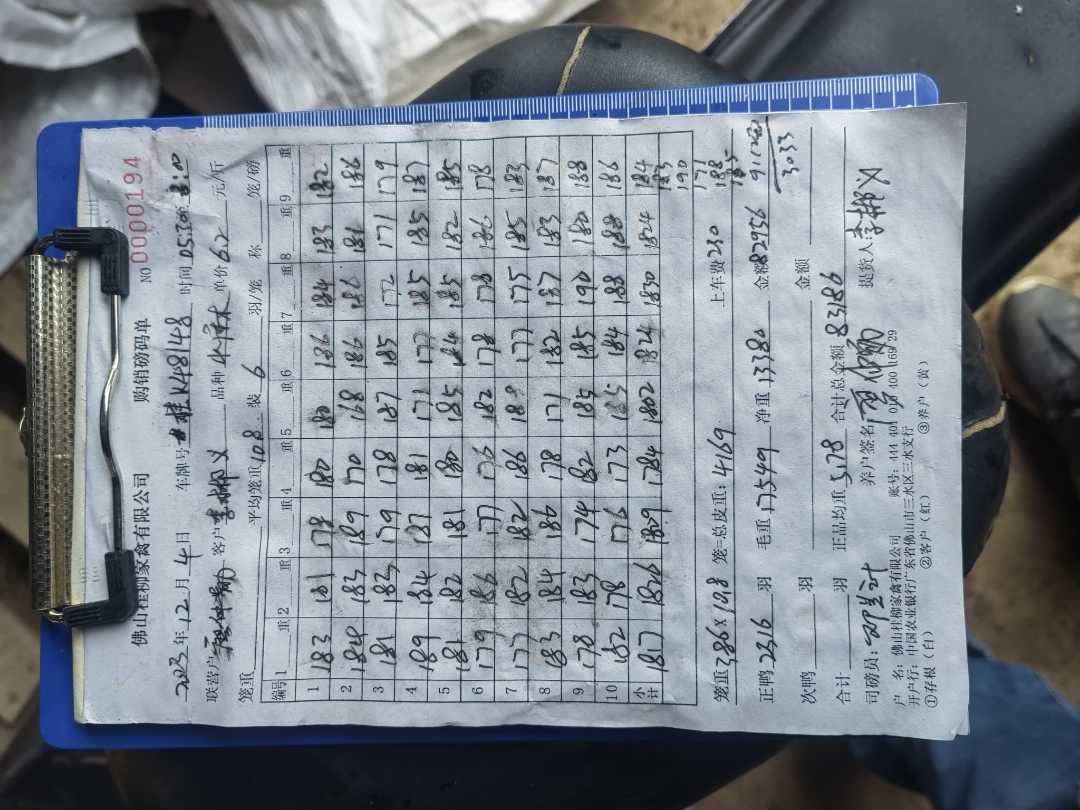 佛山桂柳家禽有限公司 购销磅码单 NO 0000194
2023年12月4日 车牌号 桂K48148 时间 05:30 8:00
联营户 客户 李彬义 品种 单价 6.2 元/斤
笼重 平均笼重 108 装 6 羽/笼 称 笼/磅
编号 1 重 2 重 3 重 4 重 5 重 6 重 7 重 8 重 9 重
1 183 181 178 180 180 186 184 183 182
2 184 183 189 170 168 186 186 181 186
3 181 183 179 178 187 185 172 171 179
4 189 184 187 181 171 177 185 185 187
5 181 182 181 180 185 184 185 182 185
6 179 186 177 176 182 178 178 186 178
7 177 182 182 186 188 177 175 185 183
8 183 184 186 178 171 182 187 183 187
9 178 183 174 182 185 185 190 180 188
10 182 178 176 173 185 184 188 188 186
小计 1817 1826 1809 1784 1802 1824 1830 1824 184
183
190
171
188
185
笼重 386×108 笼=总皮重: 4169 上车费 230
正鸭 2316 羽 毛重 17549 净重 13380 金额 82956
3033
次鸭 羽 金额
合计 羽 正品均重 5.78 合计总金额 83186
司磅员: 养户签名 提货人 李彬义
户 名: 佛山桂柳家禽有限公司 账号: 444 401 0 400 169 29
开户行: 中国农业银行广东省佛山市三水区三水支行
①存根(白) ②客户(红) ③养户(黄)